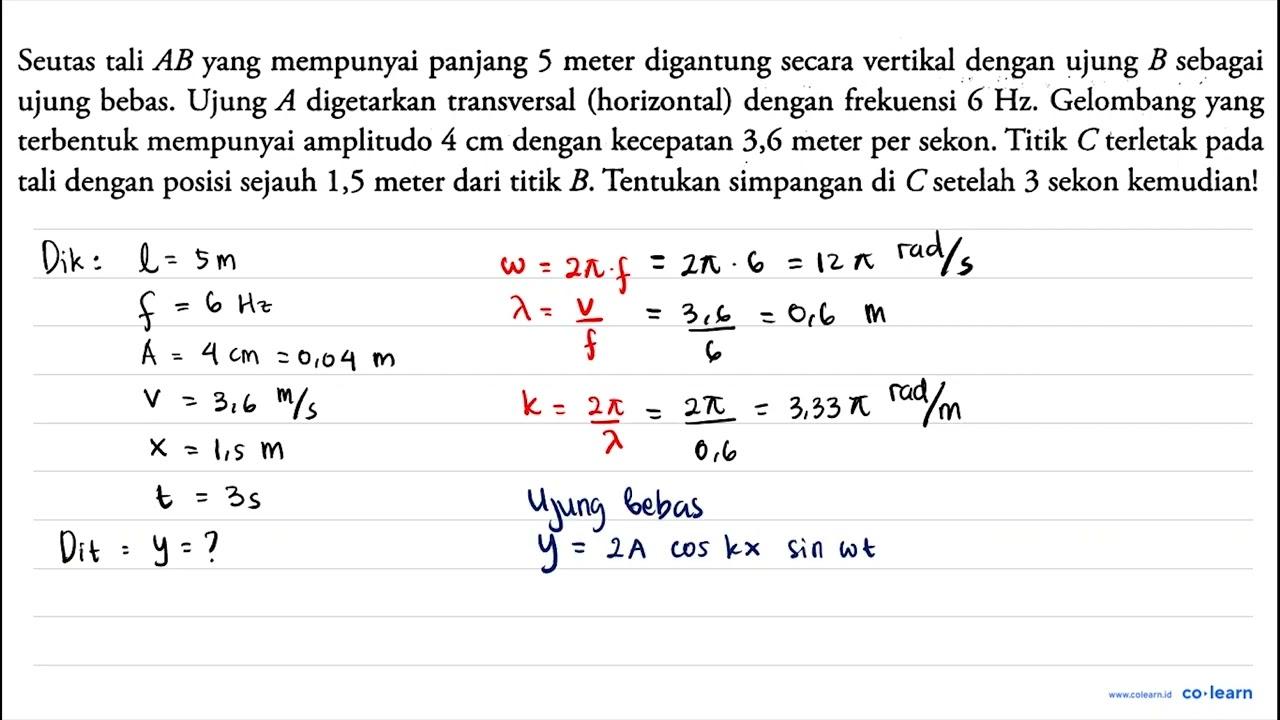 Seutas tali AB yang mempunyai panjang 5 meter digantung secara vertikal dengan ujung B sebagai
ujung bebas. Ujung A digetarkan transversal (horizontal) dengan frekuensi 6 Hz. Gelombang yang
terbentuk mempunyai amplitudo 4 cm dengan kecepatan 3,6 meter per sekon. Titik C terletak pada
tali dengan posisi sejauh 1,5 meter dari titik B. Tentukan simpangan di C setelah 3 sekon kemudian!
Dik : l = 5 m
f = 6 Hz
A = 4 cm = 0,04 m
v = 3,6 m/s
x = 1,5 m
t = 3s
Dit : y = ?
ω = 2π . f = 2π . 6 = 12 π rad/s
λ = v/f = 3,6/6 = 0,6 m
k = 2π/λ = 2π/0,6 = 3,33 π rad/m
Ujung bebas
y = 2A cos kx sin ωt
www.colearn.id co·learn